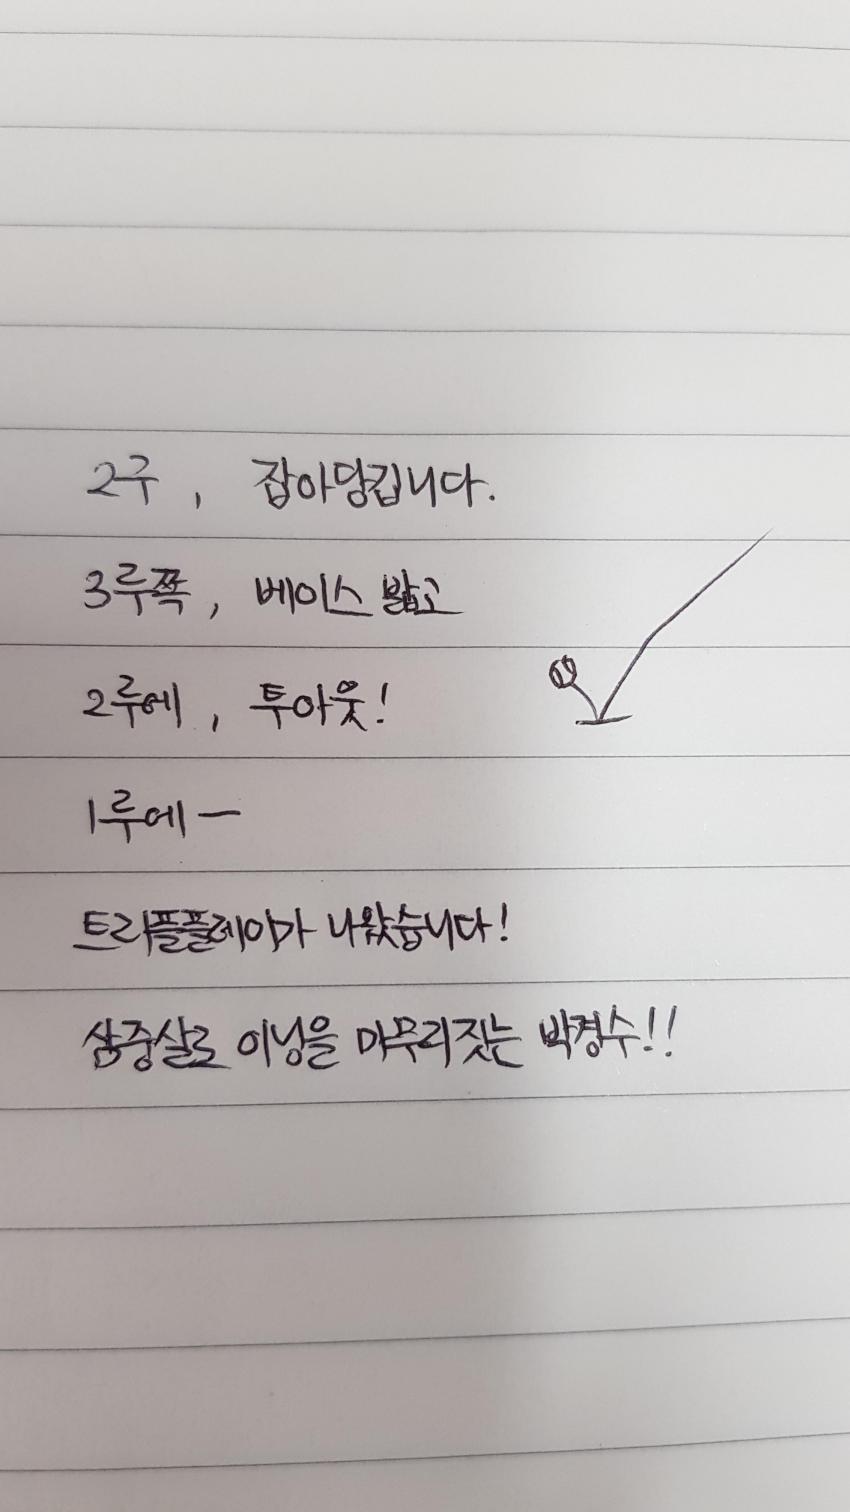 2구, 잡아당깁니다.
3루쪽, 베이스 밟고
2루에, 투아웃!
1루에 ㅡ
트리플플레이가 나왔습니다!
삼중살로 이닝을 마무리짓는 박경수!!